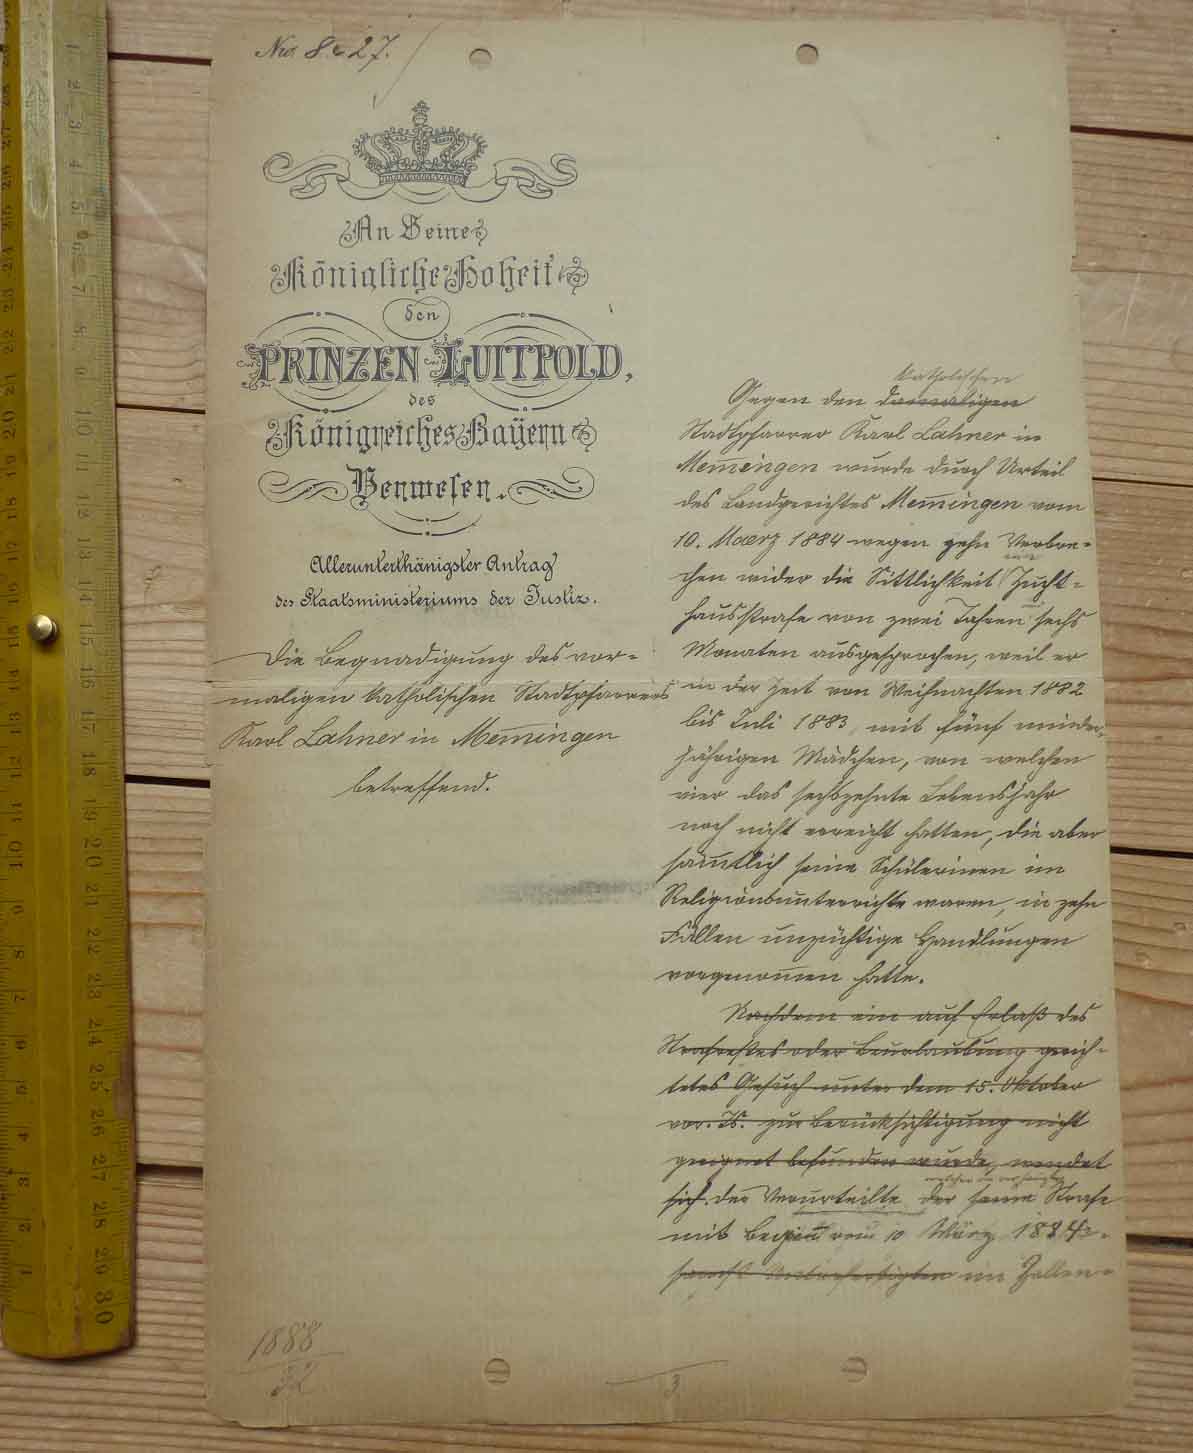 No. 8c27.
An Seine
Königliche Hoheit
den
PRINZEN LUITPOLD,
des
Königreiches Bayern
Verweser.
Allerunterthänigster Antrag
des Staatsministeriums der Justiz.
Die Begnadigung des vor-
maligen katholischen Stadtpfarrers
Karl Lahner in Memingen
betreffend.
katholischen
Gegen den damaligen
Stadtpfarrer Karl Lahner in
Memingen wurde durch Urteil
des Landgerichtes Memingen vom
10. Maerz 1884 wegen zehn Verbre-
eine
chen wider die Sittlichkeit Zucht-
hausstrafe von zwei Jahren sechs
Monaten ausgesprochen, weil er
in der Zeit von Weihnachten 1882
bis Juli 1883, mit fünf minder-
jährigen Mädchen, von welchen
vier das sechszehnte Lebensjahr
noch nicht erreicht hatten, die aber
sämtlich seine Schülerinen im
Religionsunterrichte waren, in zehn
Fällen unzüchtige Handlungen
vorgenomen hatte.
Nachdem ein auf Erlaß des
Strafrestes oder Beurlaubung gerich-
tetes Gesuch unter dem 15. Oktober
vor. Js. zur Berücksichtigung nicht
geeignet befunden wurde, wendet
sich der Verurteilte der seine Strafe
mit Begin vom 10 März 1884
im Zellen-
1888
32
3